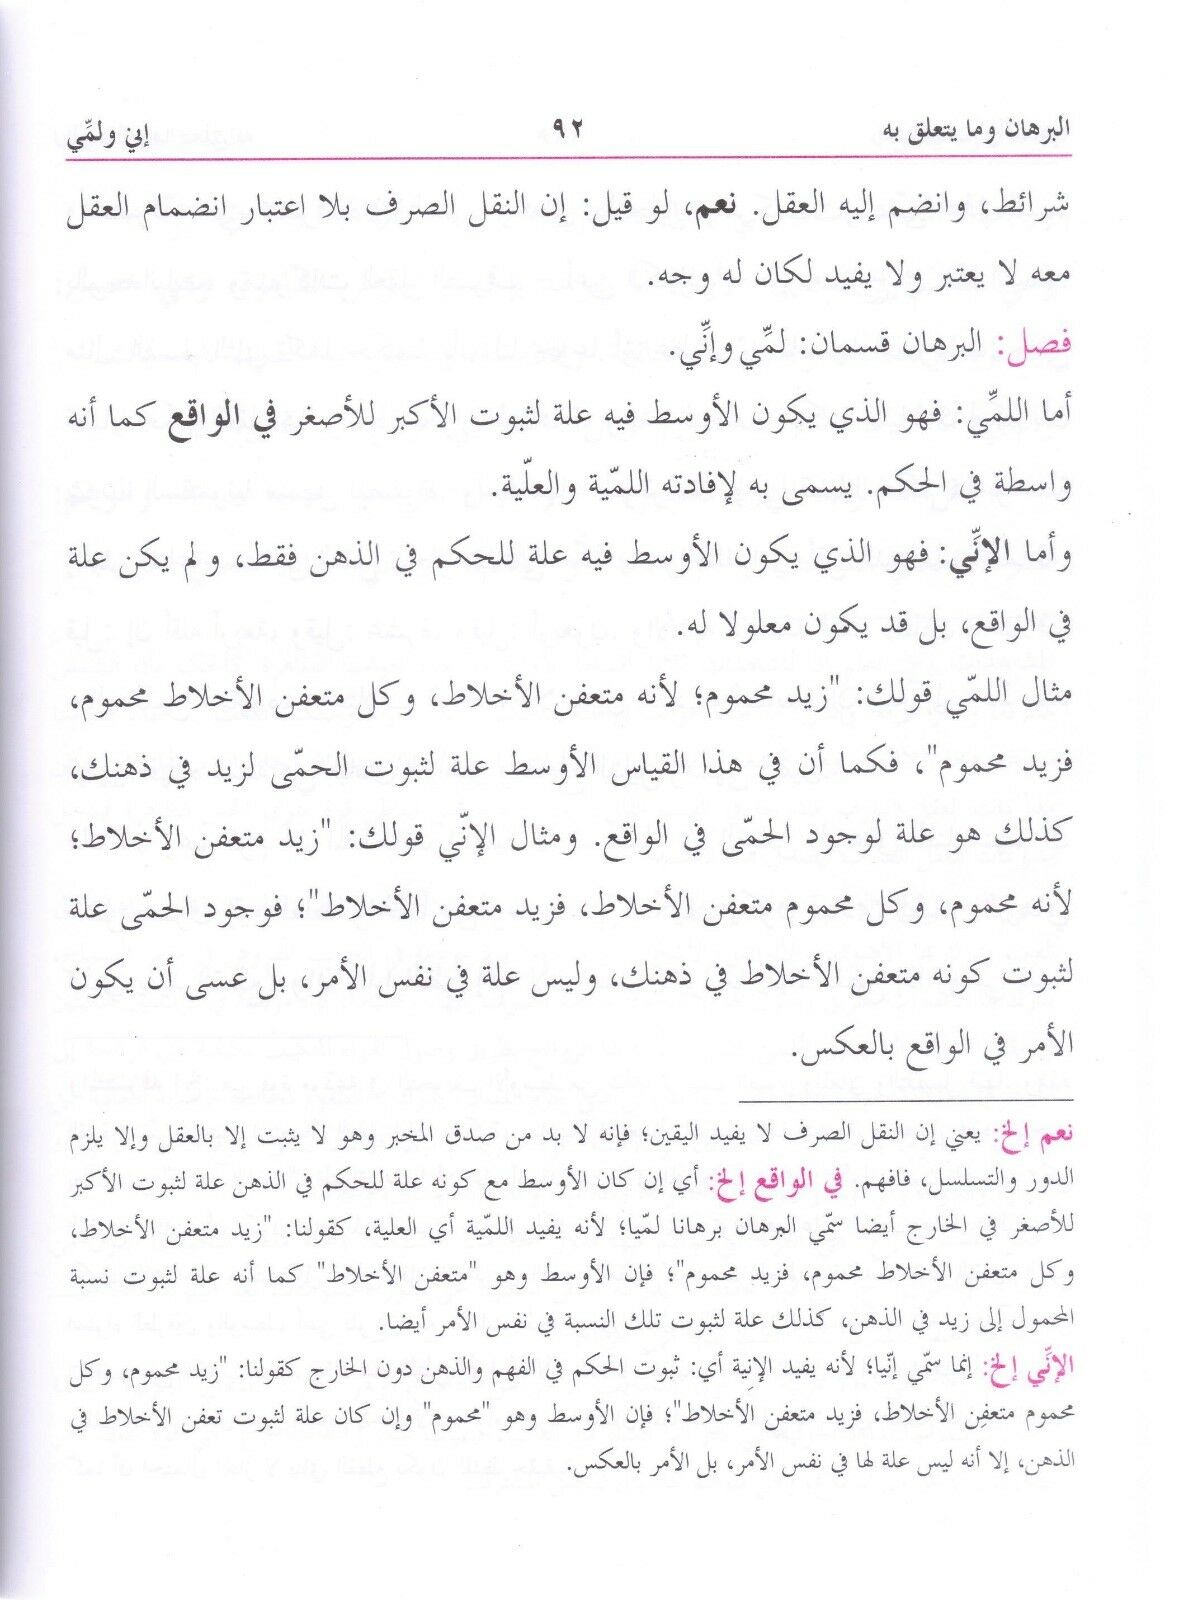 البرهان وما يتعلق به ٩٢ إني ولمِّي
شرائط، وانضم إليه العقل. نعم، لو قيل: إن النقل الصرف بلا اعتبار انضمام العقل
معه لا يعتبر ولا يفيد لكان له وجه.
فصل: البرهان قسمان: لمِّي وإنِّي.
أما اللمِّي: فهو الذي يكون الأوسط فيه علة لثبوت الأكبر للأصغر في الواقع كما أنه
واسطة في الحكم. يسمى به لإفادته اللمّية والعلّية.
وأما الإنِّي: فهو الذي يكون الأوسط فيه علة للحكم في الذهن فقط، ولم يكن علة
في الواقع، بل قد يكون معلولا له.
مثال اللمّي قولك: "زيد محموم؛ لأنه متعفن الأخلاط، وكل متعفن الأخلاط محموم،
فزيد محموم"، فكما أن في هذا القياس الأوسط علة لثبوت الحمّى لزيد في ذهنك،
كذلك هو علة لوجود الحمّى في الواقع. ومثال الإنّي قولك: "زيد متعفن الأخلاط؛
لأنه محموم، وكل محموم متعفن الأخلاط، فزيد متعفن الأخلاط"؛ فوجود الحمّى علة
لثبوت كونه متعفن الأخلاط في ذهنك، وليس علة في نفس الأمر، بل عسى أن يكون
الأمر في الواقع بالعكس.
نعم إلخ: يعني إن النقل الصرف لا يفيد اليقين؛ فإنه لا بد من صدق المخبر وهو لا يثبت إلا بالعقل وإلا يلزم
الدور والتسلسل، فافهم. في الواقع إلخ: أي إن كان الأوسط مع كونه علة للحكم في الذهن علة لثبوت الأكبر
للأصغر في الخارج أيضا سمّي البرهان برهانا لمّيا؛ لأنه يفيد اللمّية أي العلية، كقولنا: "زيد متعفن الأخلاط،
وكل متعفن الأخلاط محموم، فزيد محموم"؛ فإن الأوسط وهو "متعفن الأخلاط" كما أنه علة لثبوت نسبة
المحمول إلى زيد في الذهن، كذلك علة لثبوت تلك النسبة في نفس الأمر أيضا.
الإنِّي إلخ: إنما سمّي إنّيا؛ لأنه يفيد الإنِية أي: ثبوت الحكم في الفهم والذهن دون الخارج كقولنا: "زيد محموم، وكل
محموم متعفِن الأخلاط، فزيد متعفن الأخلاط"؛ فإن الأوسط وهو "محموم" وإن كان علة لثبوت تعفن الأخلاط في
الذهن، إلا أنه ليس علة لها في نفس الأمر، بل الأمر بالعكس.